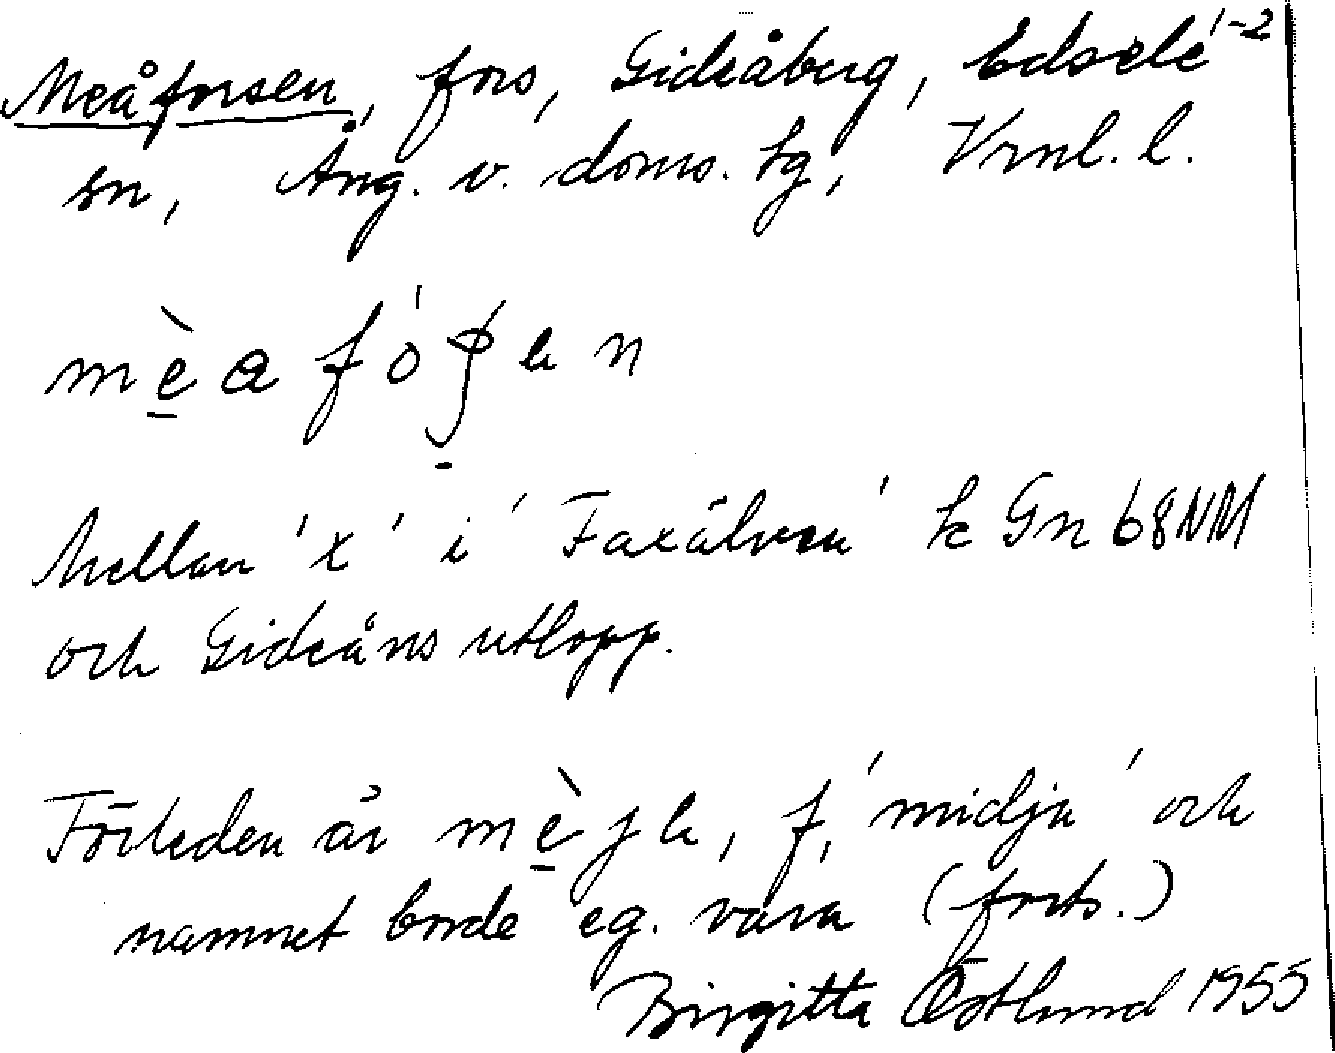 Meåforsen, fors, Gideåberg, Edsele 1-2
sn, Ång. v. doms. tg, Vrnl. l.
Mellan 'x' i 'Faxälven' k Gn 68NM
och Gideåns utlopp.
Förleden är mè̱jɐ, f, 'midja' och
namnet borde eg. vara (forts.)
Birgitta Östlund 1955